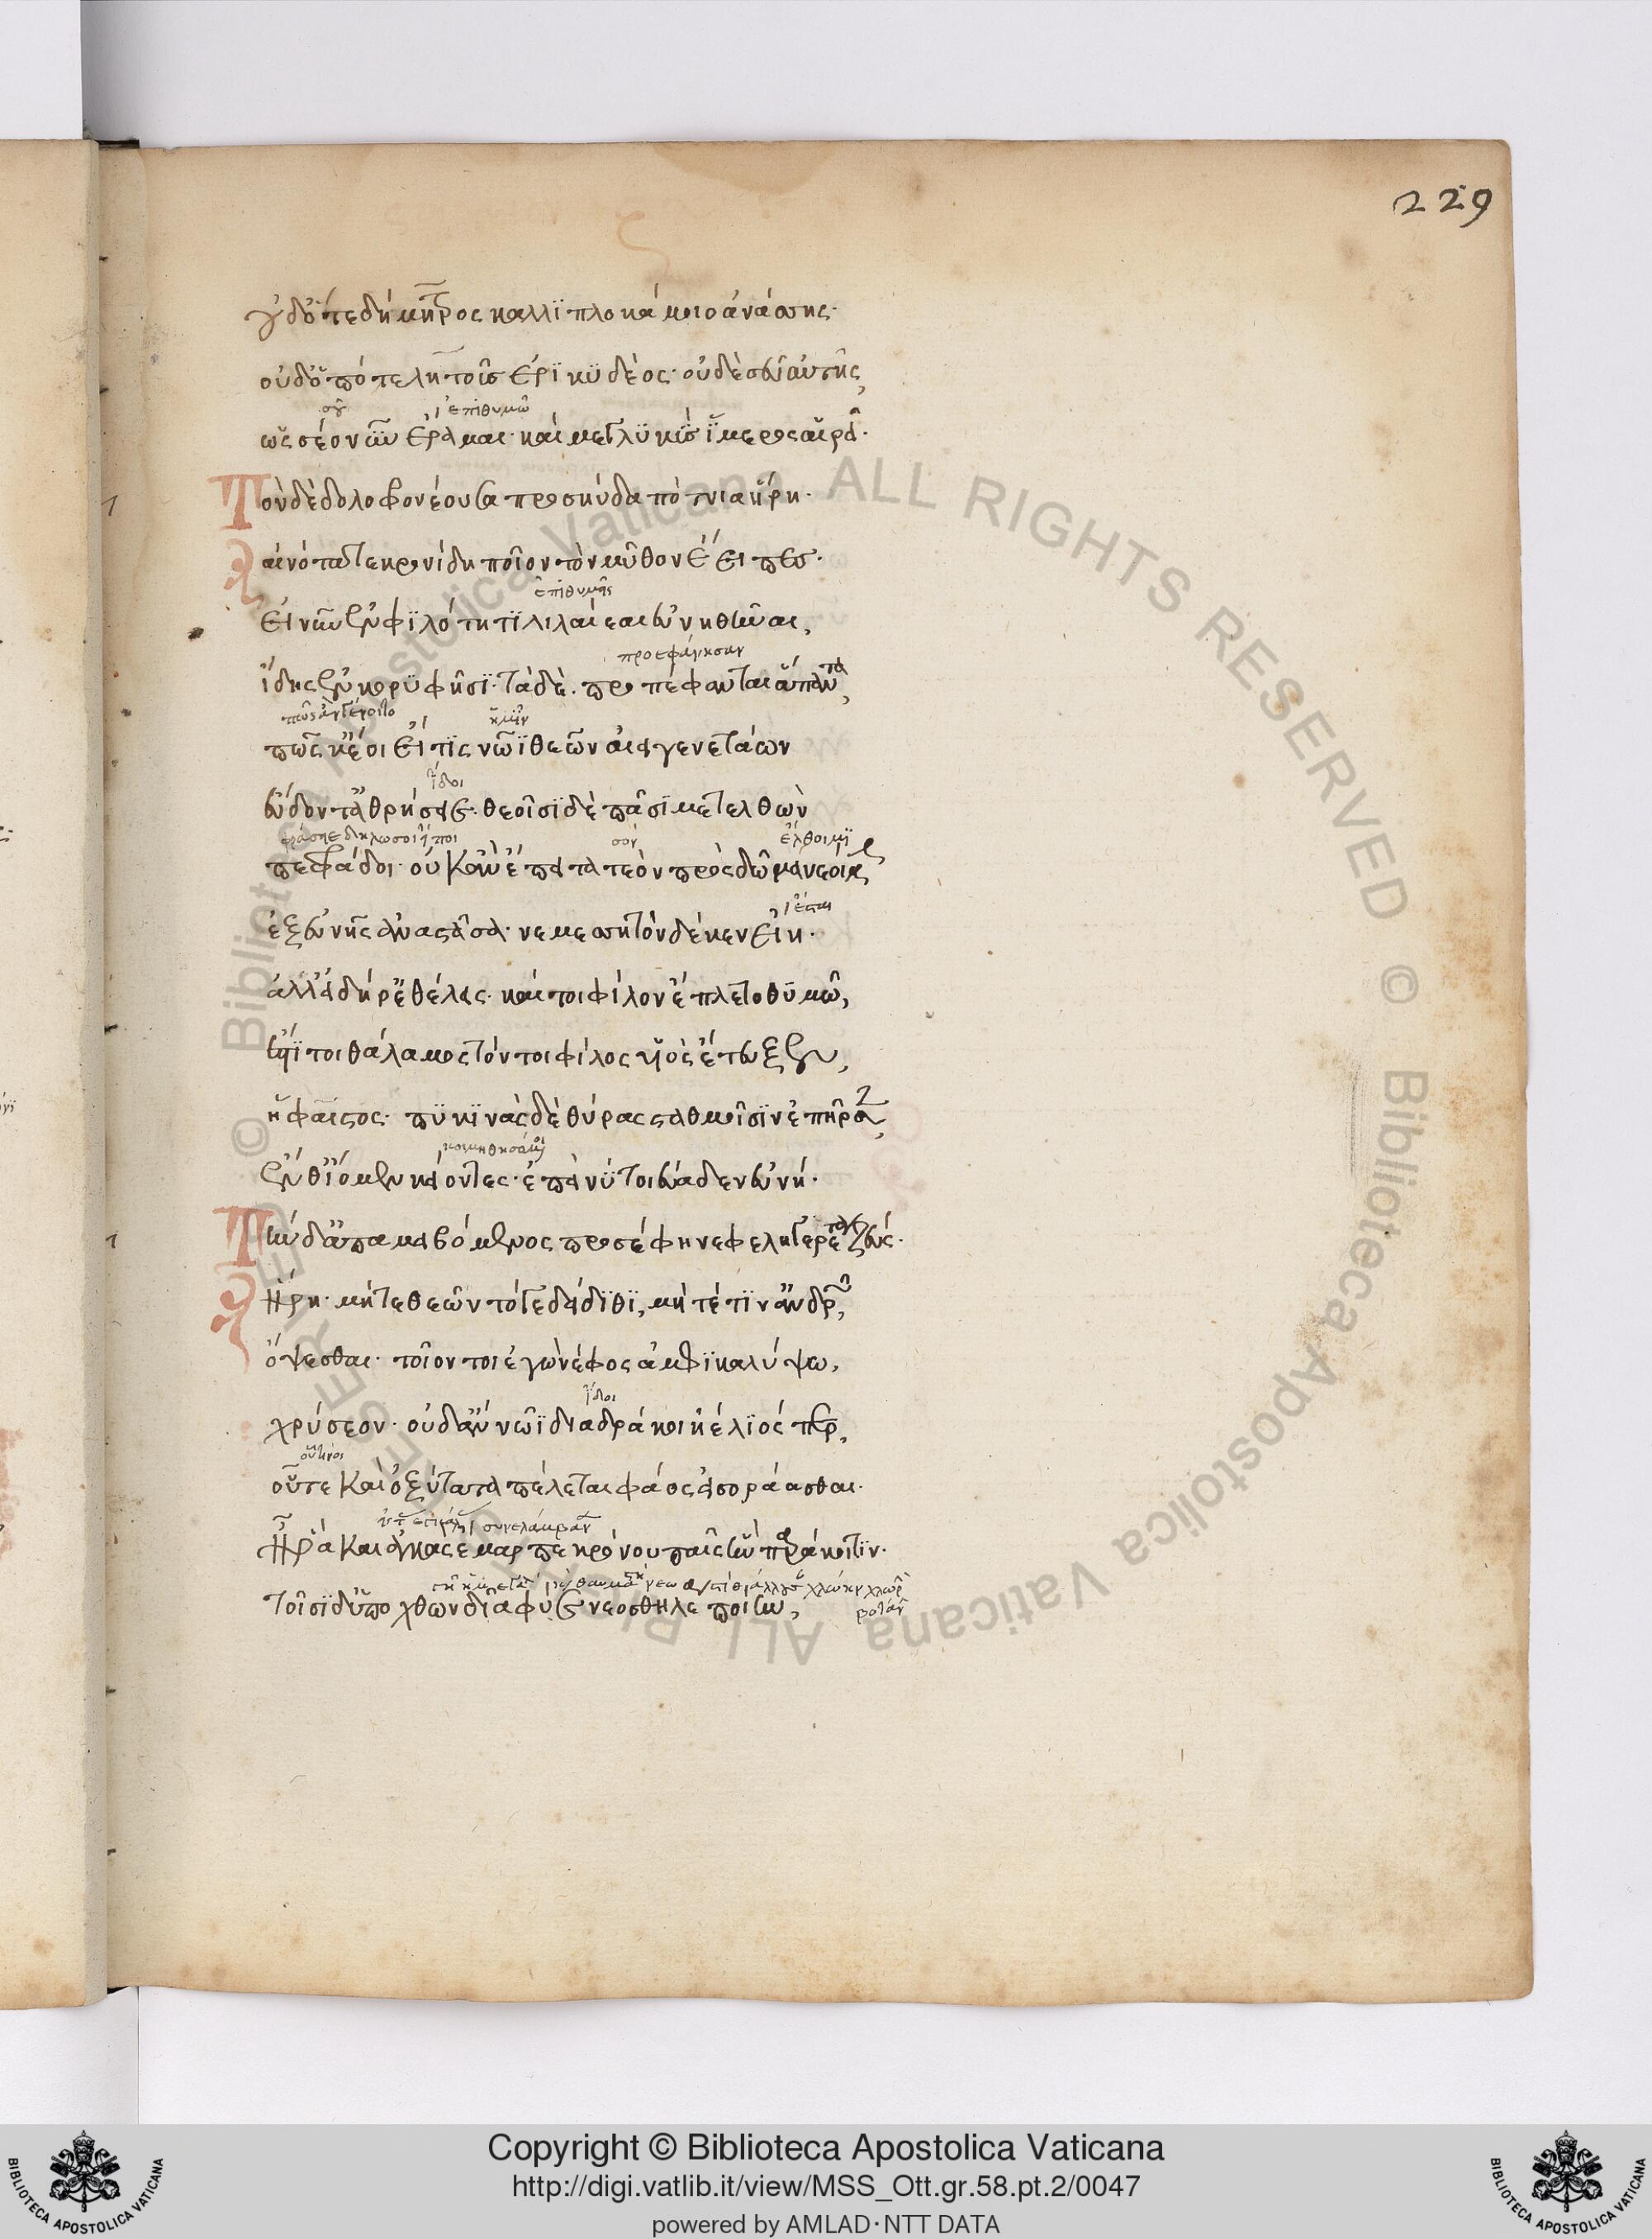 229
οὐδ' ὅτε δήμητρος καλλϊπλοκάμοιο ἀνάσσης·
οὐδ' ὁπότε λητοῦς ἐρικϋδέος· οὐδὲ σεῦ αὐτῆς,
σοῦ ἐπιθυμῶ
ὡς σέο νῦν ἔραμαι· καί με γλϋκὺς ἵμερος αἱρεῖ·
Τὸν δὲ δολοφρονέουσα προσηύδα πότνια ἥρη·
αἰνότατε κρονίδη ποῖον τὸν μῦθον ἔειπες·
ἐπιθυμῆς
εἰ νῦν ἐν φϊλότητϊ λιλαίεαι εὐνηθῆναι,
προεφάνησαν
ἴδης ἐν κορϋφῆσϊ· τὰ δὲ προπέφανται ἅπαντα,
πῶς ἂν γένοιτο ἡμῖν
πῶς κ' ἔοι εἴ τϊς νῶϊ θεῶν αἰειγενετάων
ἴδοι
εὕδοντ' ἀθρήσειε· θεοῖσϊ δὲ πᾶσϊ μετελθὼν
σὸν ἔλθοιμϊ
πεφράδοι· οὐκ ἂν ἔγωγε τεὸν πρὸς δῶμα νεοίμην
ἐξ εὐνῆς ἀναστᾶσα· νεμεσσητὸν δέ κεν εἴη·
ἀλλ' εἰ δή ῥ' ἐθέλεις· καί τοι φίλον ἔπλετο θϋμῶ,
ἔστϊ τοι θάλαμος τόν τοι φίλος υἱὸς ἔτευξεν,
ἥφαιστος· πϋκϊνὰς δὲ θύρας σταθμοῖσϊν ἐπῆρσε,
κοιμηθησόμενοι
ἔνθ' ἴομεν κείοντες· ἐπεὶ νύ τοι εὔαδεν εὐνή·
Τὴν δ' ἀπαμειβόμενος προσέφη νεφεληγερέτα ζεύς·
Ἥρη· μήτε θεῶν τό γε δείδϊθϊ, μήτέ τϊν' ἀνδρῶν
ὄψεσθαι· τοῖόν τοι ἐγὼ νέφος ἀμφϊκαλύψω,
ἴδοι
χρύσεον· οὐδ' ἂν νῶϊ διαδράκοι ἠέλϊός περ,
οὗτινος
οὗτε καὶ ὀξύτατον πέλεται φάος εἰσοράασθαι·
Ἦ ῥα καὶ ἀγκὰς ἔμαρπτε κρόνου παῖς ἣν παράκοιτϊν·
τοῖσϊ δ' ὑπὸ χθὼν δῖα φύεν νεοθηλέα ποίην,